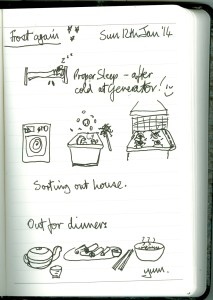 Frost again
Sun 12th Jan '14
zzz
Proper Sleep - after
cold at Generator!
Sorting out house.
Out for dinner:
yum.